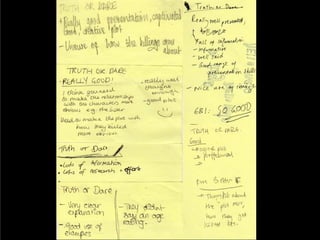 TRUTH OR DARE
• Really good presentation, captivated
good, creative plot
• Unsure of how the killings came
about
TRUTH OR DARE
- REALLY GOOD!
- I think you need
to make the relationship
with the characters more
obvious e.g. the sister
- Need to make the plot with
how they killed
more obvious
- really well
thought
enough
- good plot
Truth or Dare
• Lots of information
• Lots of research + effort
Truth or Dare
- Very clear
explanation
- Good use of
examples
- They didn't
say an age
rating.
Truth or Dare
Really well presented,
Full of information
- Informative
- Well said
- Good range of
presentation skills
- NICE
EBI: SO GOOD
TRUTH OR DARE.
Good
Even Better If
- Thought about
the plot more,
how they get
killed etc.